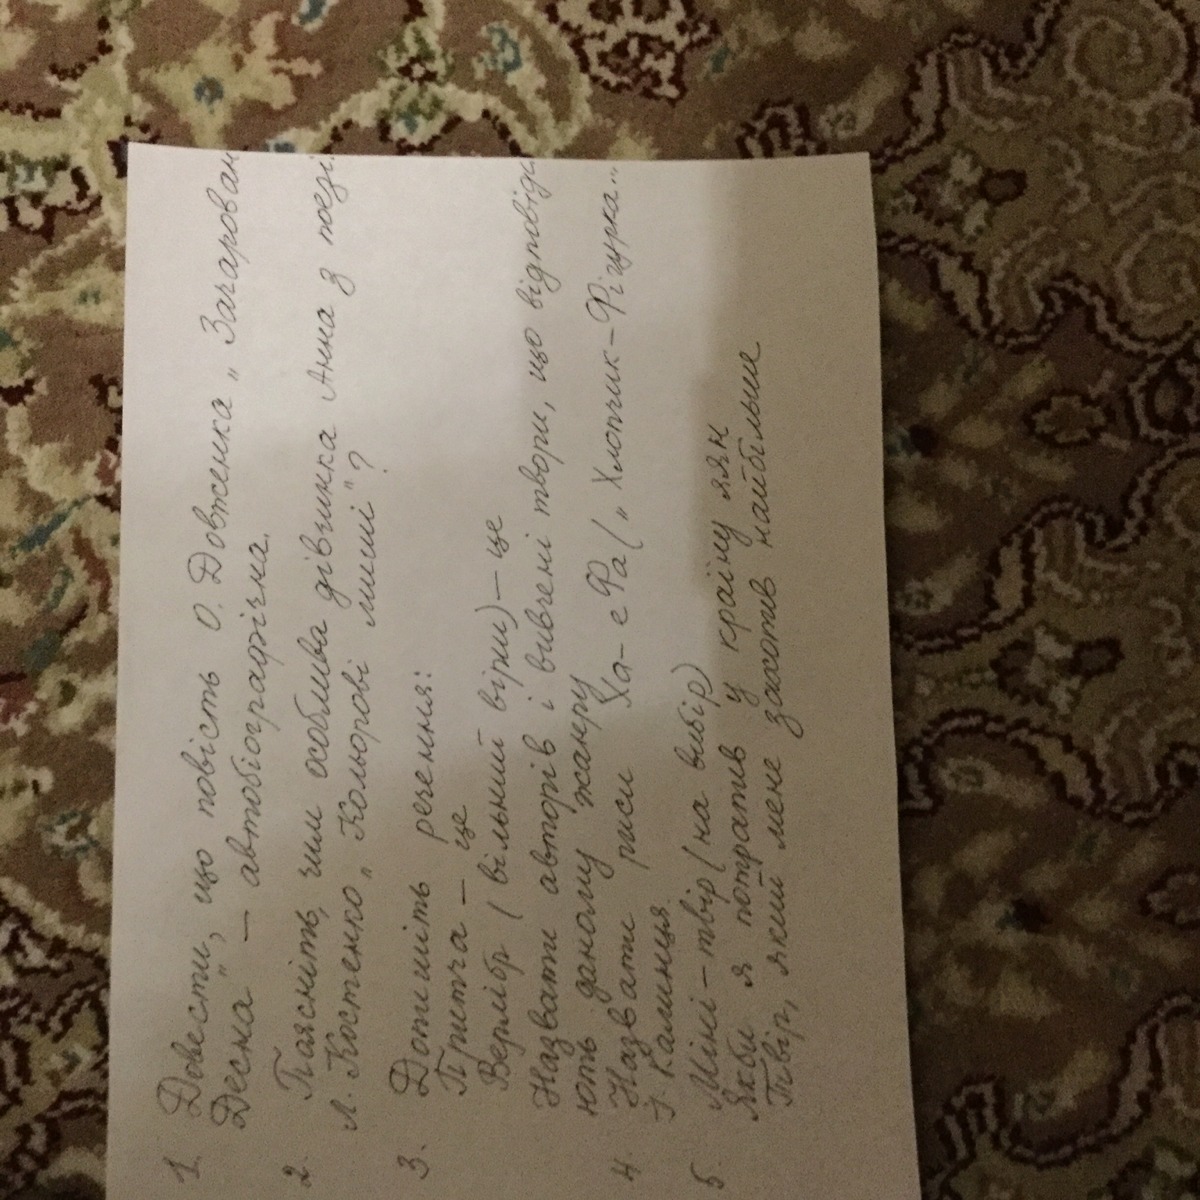 1. Довести, що повість О. Довженка „Зачарован
Десна" – автобіографічна.
2. Поясніть, чим особлива дівчинка Анна з поезі
Л. Костенко „Кольорові миші"?
3. Допишіть речення:
Притча – це
Верлібр (вільний вірш) – це
Назвати авторів і вивчені твори, що відповіда
ють даному жанру
4. Назвати риси Ха-еФа („Хлопчик-Фігурка...
І. Калинця.
5. Міні-твір (на вибір)
Якби я потратив у країну ЯЯН
Твір, який мене захопив найбільше